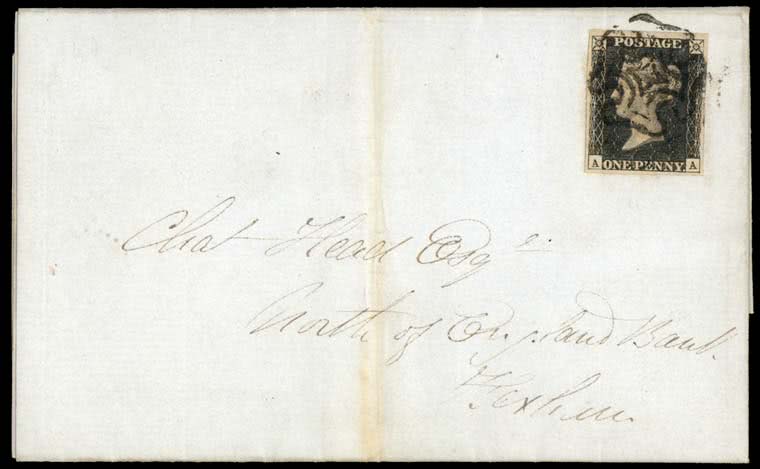 POSTAGE
A ONE PENNY A
Chat Head Esqr
North of England Bank
Hexham